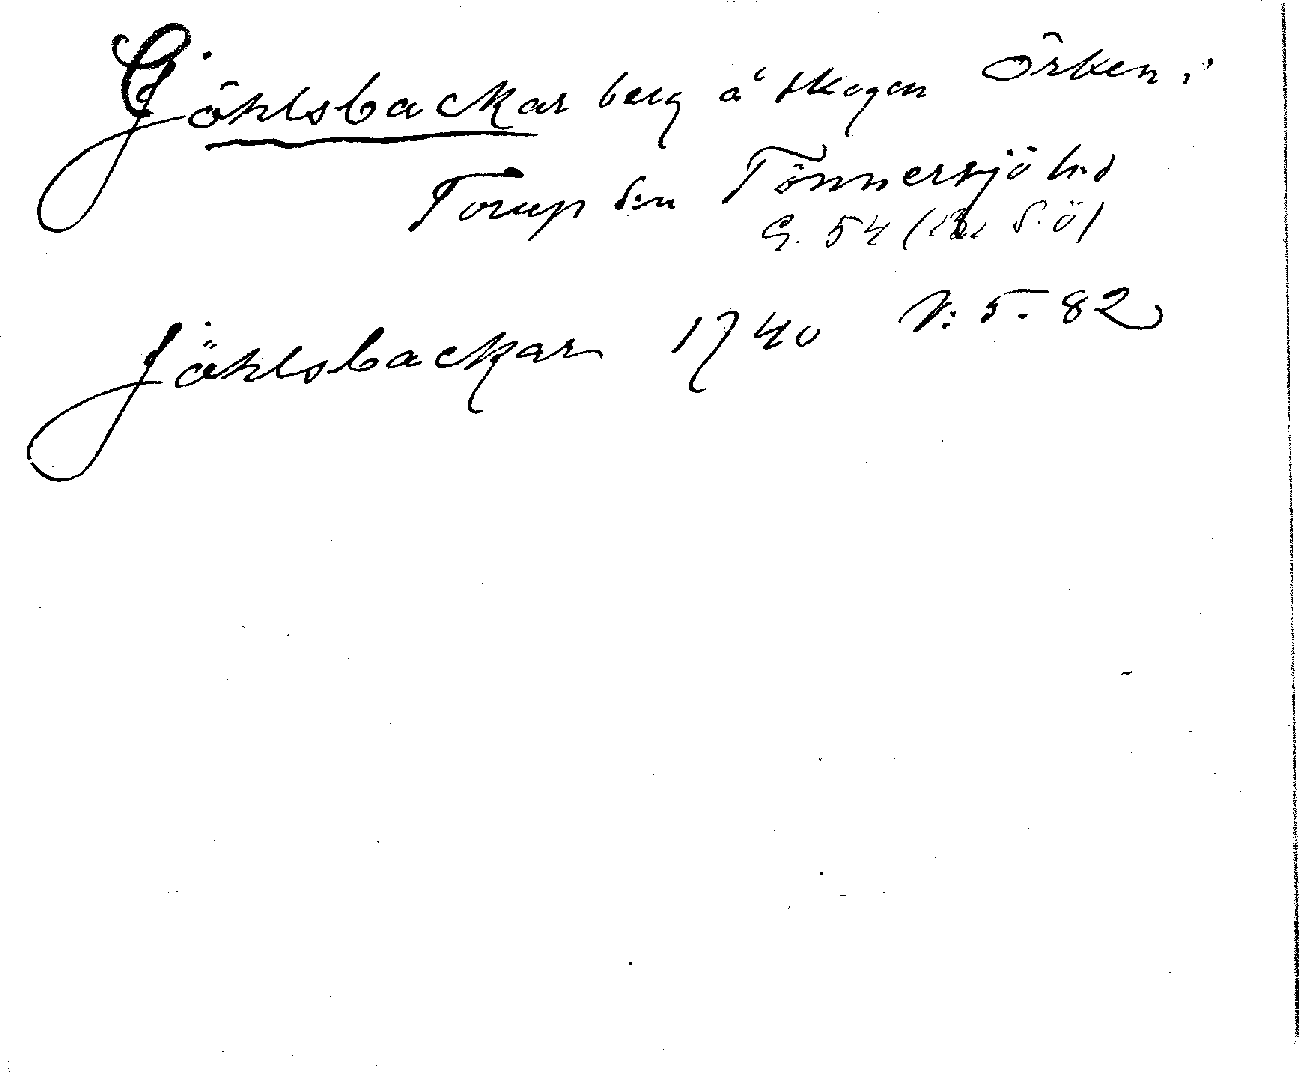 Gjöhlsbackar berg å skogen Örken i
Torup s:n Tönnersjö h:d
G. 54 ( S. ö)
Jöhlsbackar 1740 V: 5-82